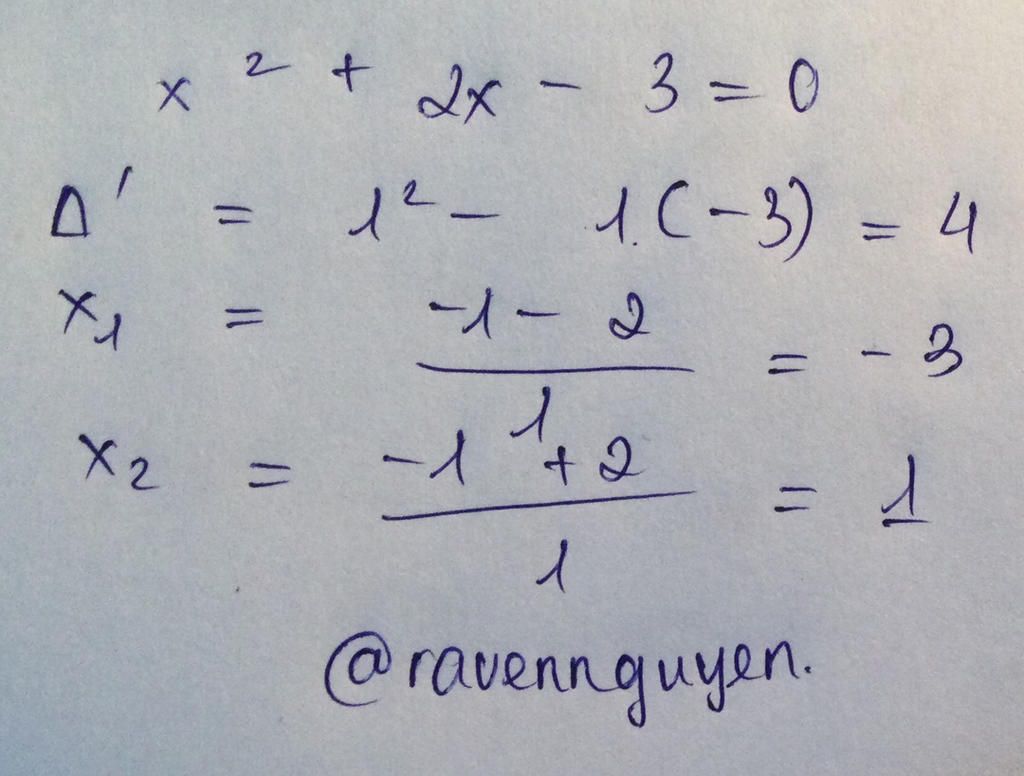 x² + 2x - 3 = 0
Δ' = 1² - 1.(-3) = 4
x₁ = (-1 - 2)/1 = -3
x₂ = (-1 + 2)/1 = 1
@ravennguyen.